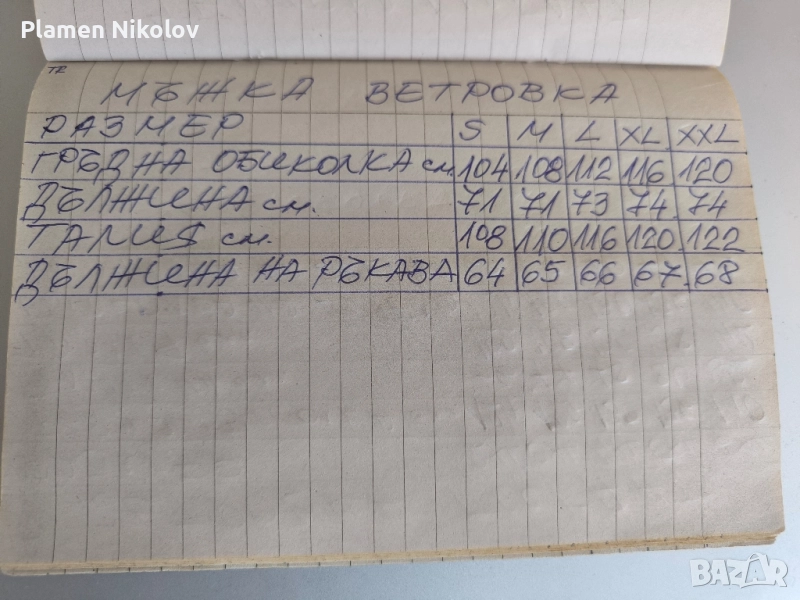 Plamen Nikolov
TR
МЪЖКА ВЕТРОВКА
РАЗМЕР S M L XL XXL
ГРЪДНА ОБИКОЛКА см. 104 108 112 116 120
ДЪЛЖИНА см. 71 71 73 74 74
ТАЛИЯ см. 108 110 116 120 122
ДЪЛЖИНА НА РЪКАВА 64 65 66 67 68
BAZAR